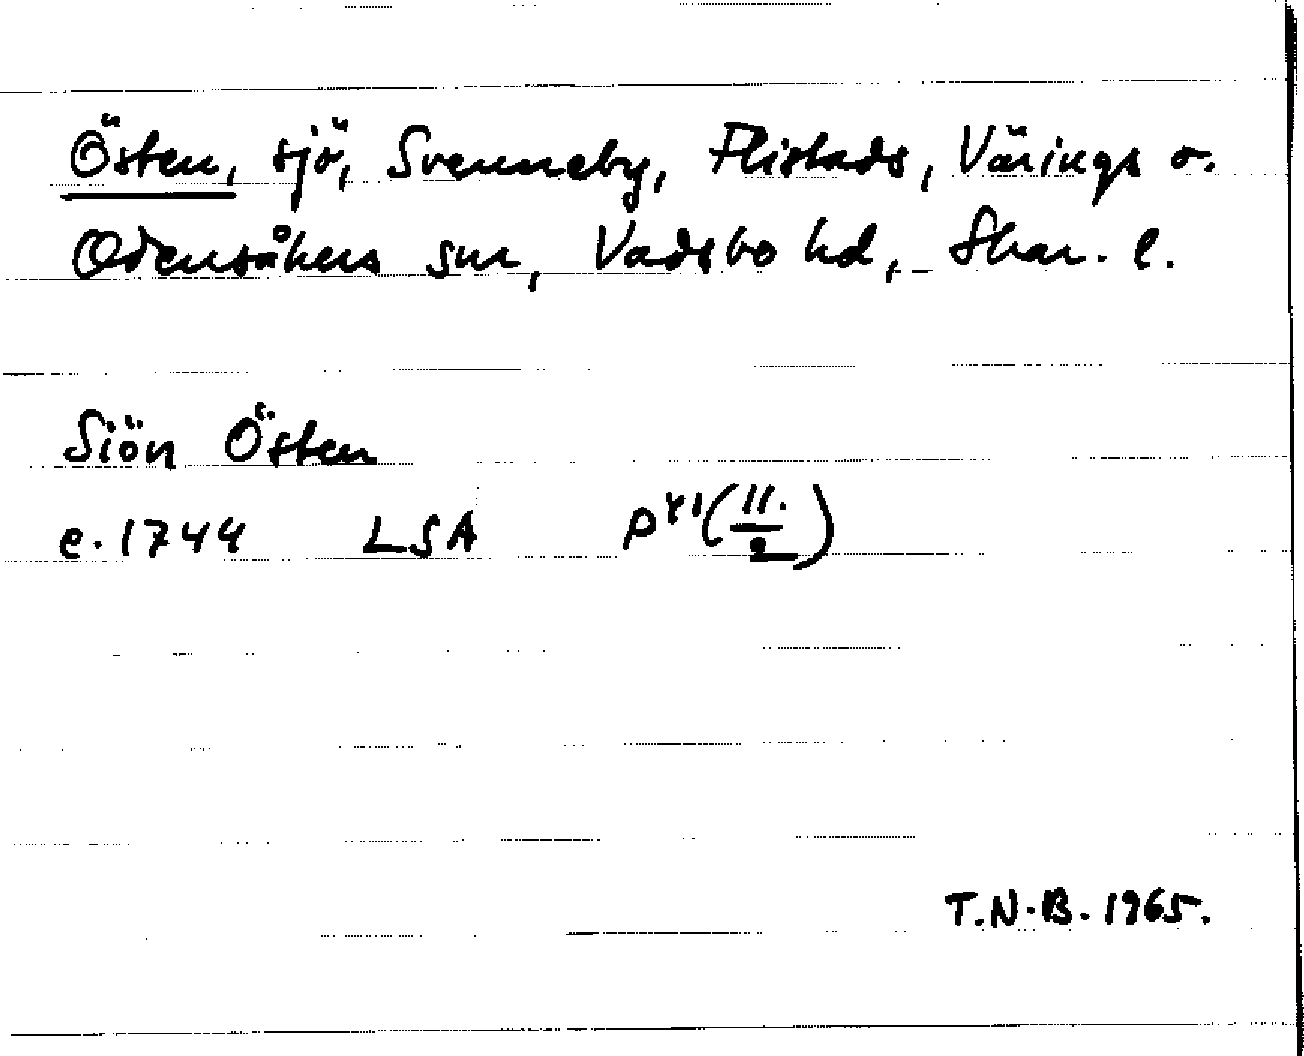 Östen, sjö, Svenneby, Flistads, Värings o.
Odensåkers snr, Vadsbo hd, Skar. l.
Siön Östen
e. 1744 LSA P41(11./2)
T.N.B. 1965.